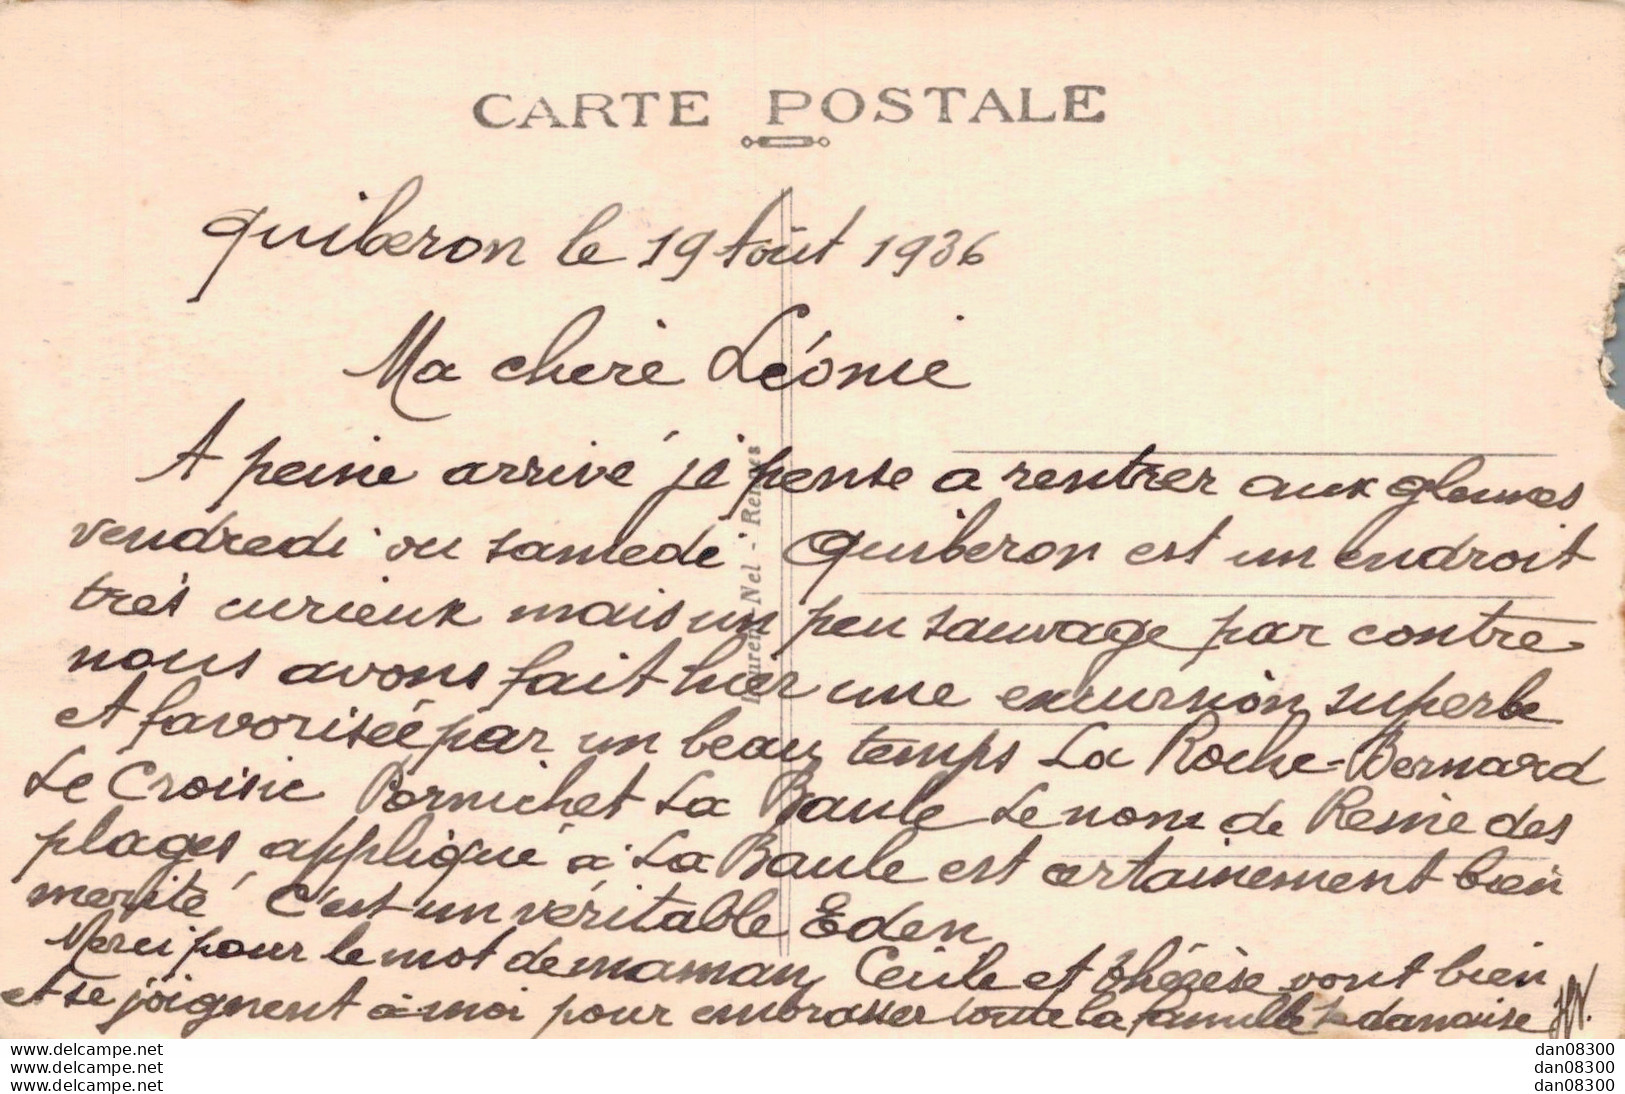 CARTE POSTALE
Quiberon le 19 Août 1936
Ma chere Léonie
A peine arrivé je pense a rentrer aux glennes
vendredi ou samedi Quiberon est un endroit
très curieux mais un peu sauvage par contre
nous avons fait hier une excursion superbe
et favorisée par un beau temps La Roche-Bernard
Le Croisic Pornichet La Baule Le nom de Reine des
plages appliqué à La Baule est certainement bien
merité C'est un véritable Eden
Merci pour le mot de maman Cecile et thérèse vont bien
et se joignent à moi pour embrasser toute la famille
Laurent-Nel - Rennes
www.delcampe.net
www.delcampe.net
www.delcampe.net
dan08300
dan08300
dan08300